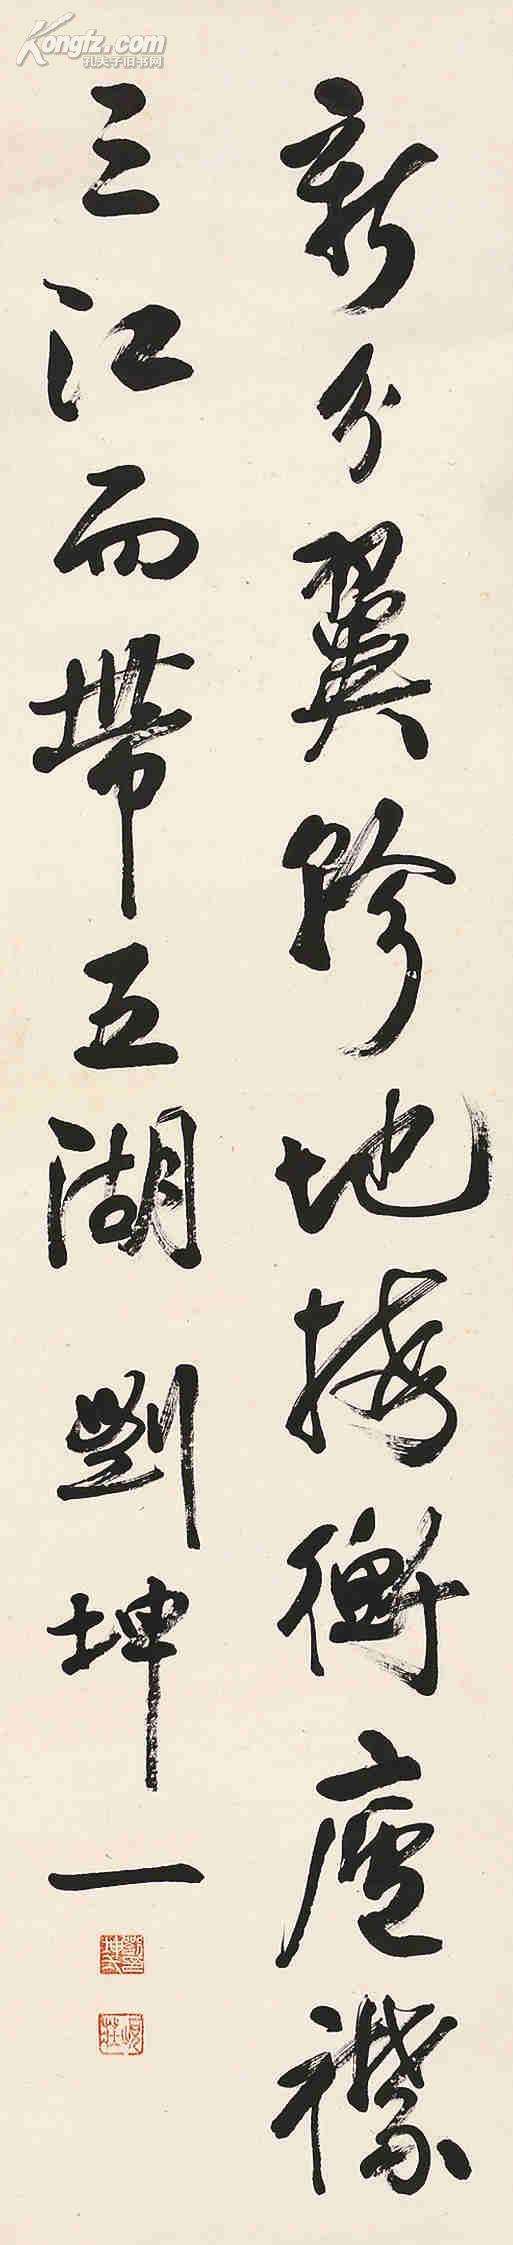 Kongfz.com
孔夫子旧书网
新分翼軫地接衡廬襟
三江而帶五湖 劉坤一
峴莊